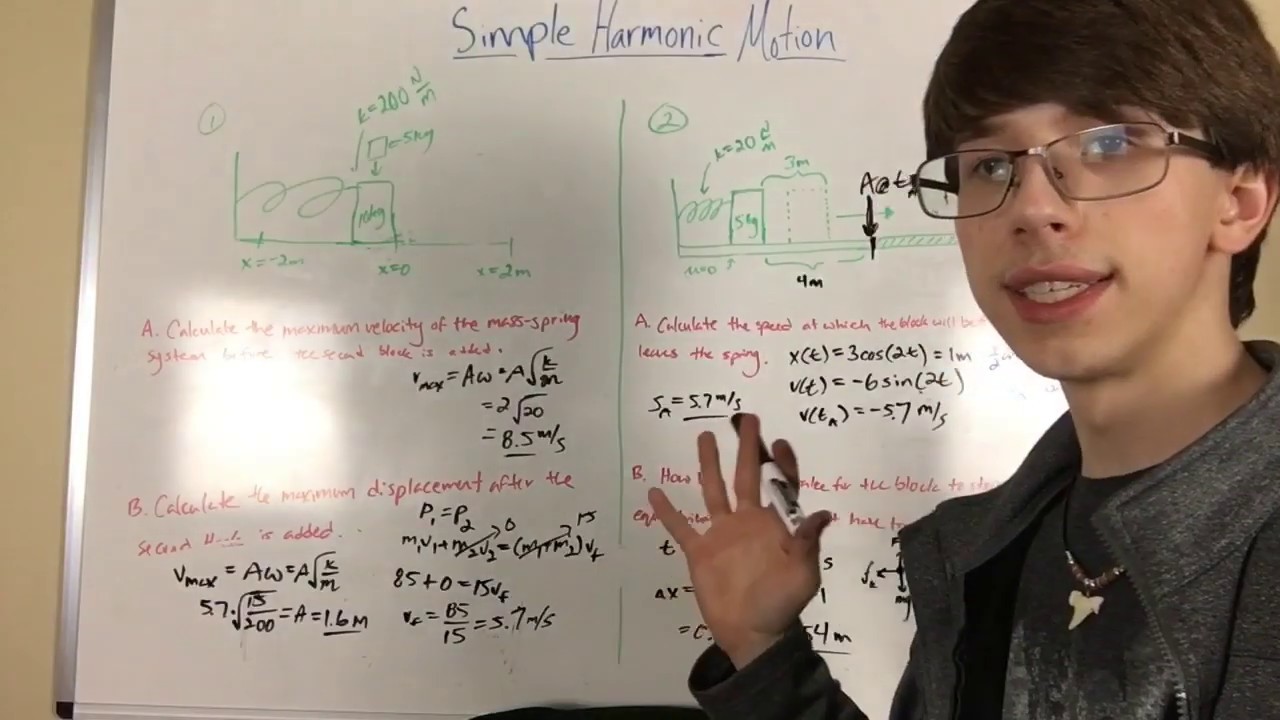 Simple Harmonic Motion
①
k=200 N/m
5kg
10kg
x=-2m
x=0
x=2m
A. Calculate the maximum velocity of the mass-spring
system before the second block is added.
vmax = Aω = A√k/m
= 2√20
= 8.5 m/s
B. Calculate the maximum displacement after the
second is added.
P₁=P₂
0
15
m₁v₁+m₂v₂=(m₁+m₂)vf
85+0=15vf
vf = 85/15 = 5.7 m/s
vmax = Aω = A√k/m
5.7·√15/200 = A = 1.6 m
②
k=20 N/m
3m
5kg
A@t
μ=0
4m
A. Calculate the speed at which the block will
leave the spring.
x(t) = 3cos(2t) = 1m
v(t) = -6sin(2t)
v(tA) = -5.7 m/s
SA = 5.7 m/s
B. How for the block to
t
s
Δx =
54 m